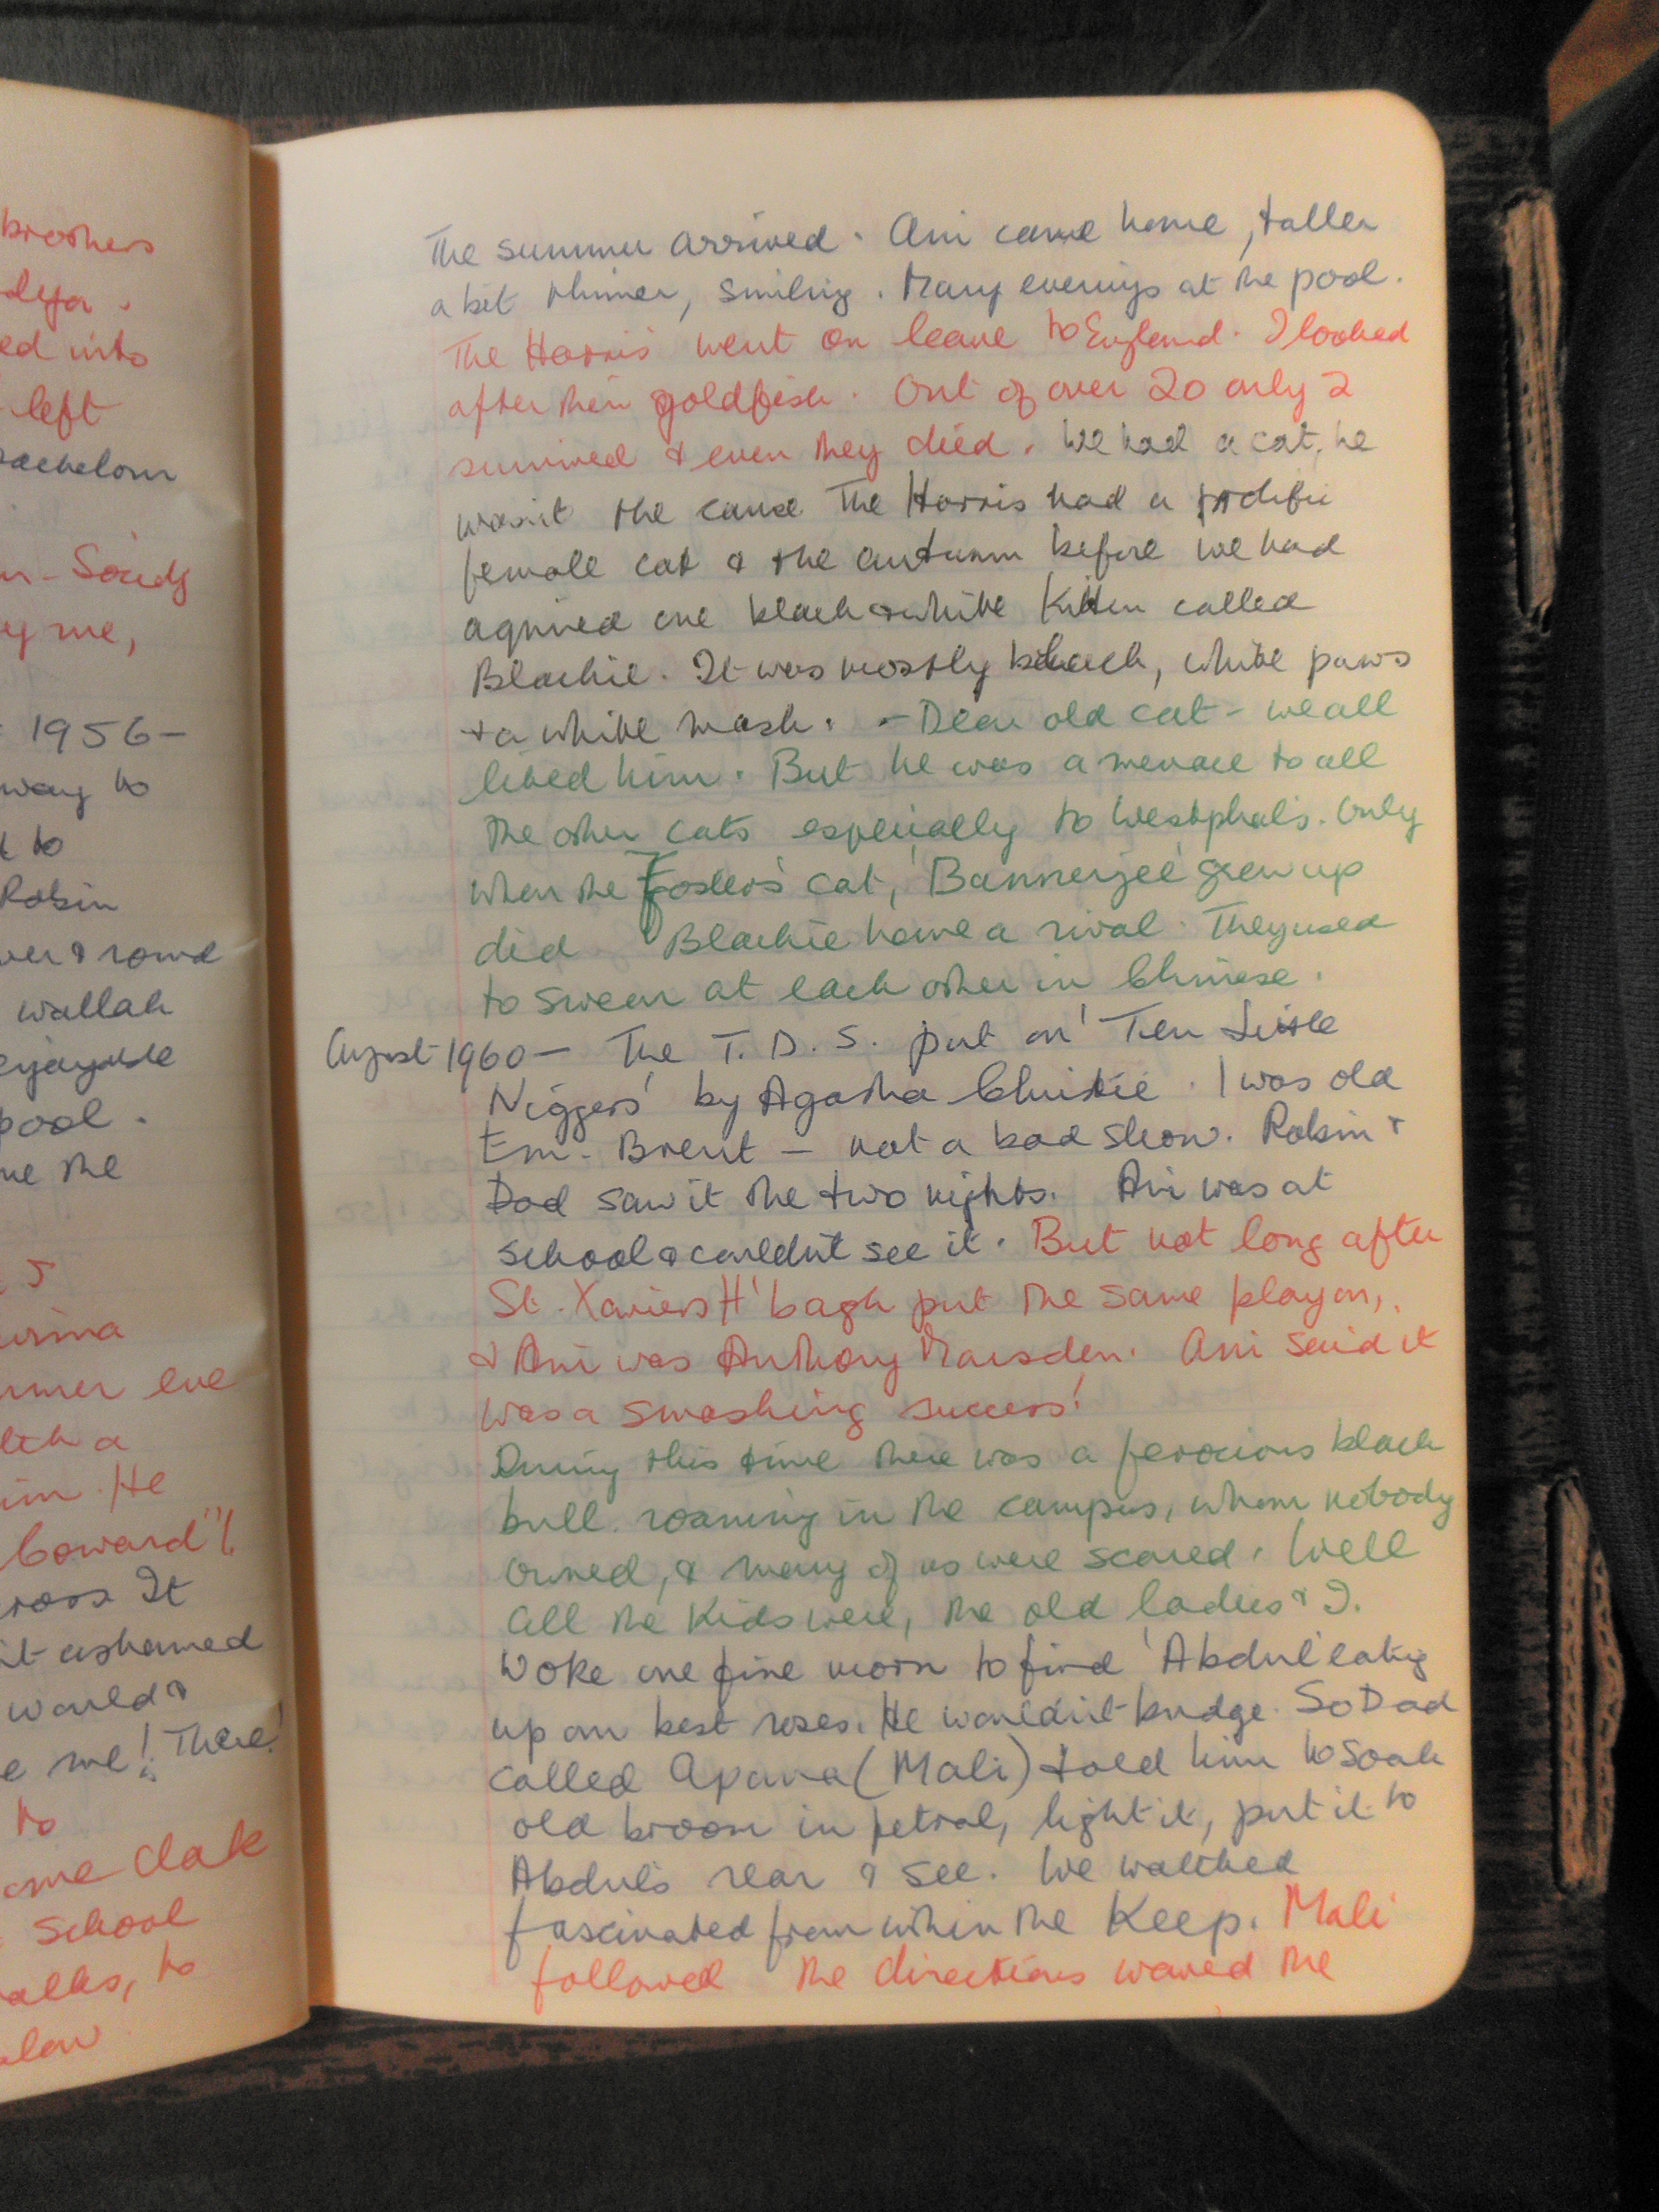 brothers
ed into
left
1956-
way to
to
Robin
wallah
pool.
me the
He
Coward"!
It
ashamed
would &
me! There!
to
School
to
The summer arrived. Ani came home, taller
a bit thinner, smiling. Many evenings at the pool.
The Harris' went on leave to England. I looked
after their goldfish. Out of over 20 only 2
survived & even they died. We had a cat, he
wasn't the cause. The Harris had a prolific
female cat & the autumn before we had
aquired one black & white Kitten called
Blackie. It was mostly black, white paws
& a white mask. - Dear old cat - we all
liked him. But he was a menace to all
the other cats especially to Westphal's. Only
when the Foster's cat, 'Bannerjee' grew up
did Blackie have a rival. They used
to swear at each other in Chinese.
August 1960 - The T.D.S. put on 'Ten Little
Niggers' by Agatha Christie. I was old
Em. Brent - not a bad show. Robin &
Dad saw it the two nights. Ani was at
school & couldn't see it. But not long after
St. Xaviers H'bagh put the same play on,
& Ani was Anthony Marsden. Ani said it
was a smashing success!
During this time there was a ferocious black
bull roaming in the campus, whom nobody
owned, & many of us were scared. Well
all the Kids were, the old ladies & I.
Woke one fine morn to find 'Abdul' eating
up our best roses. He wouldn't budge. So Dad
called Apana (Mali) told him to soak
old broom in petrol, light it, put it to
Abdul's rear & see. We watched
fascinated from within the Keep. Mali
followed the directions waved the